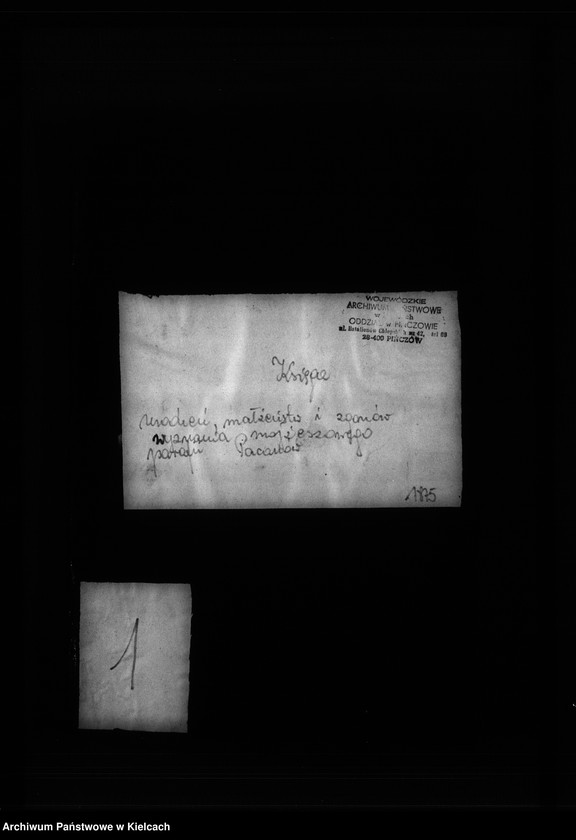 WOJEWÓDZKIE
ARCHIWUM PAŃSTWOWE
w
ODDZIAŁ w PIŃCZOWIE
28-400 PIŃCZÓW
Księga
urodzeń, małżeństw i zgonów
wyznania mojżeszowego
parafii Pacanów
1875
1
Archiwum Państwowe w Kielcach